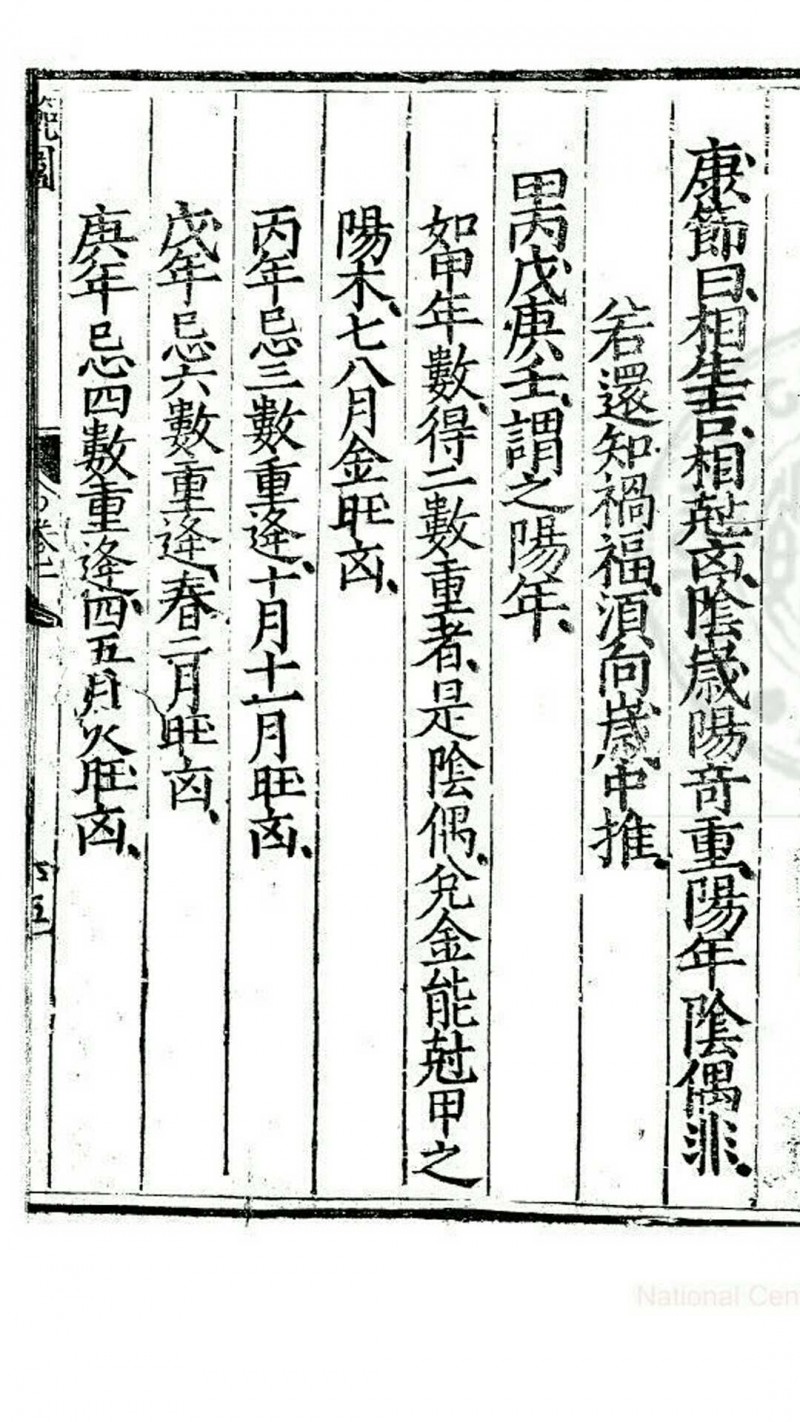 康節曰、相生吉、相尅㐫、陰歲陽竒重、陽年陰偶非、
若還知禍福、須向歲中推、
甲丙戊庚壬、謂之陽年、
如甲年數、得二數重者、是陰偶、兊金能尅甲之
陽木、七八月金旺㐫、
丙年忌三數重逢、十月十一月旺㐫、
戊年忌六數重逢、春二月旺㐫、
庚年忌四數重逢、四五月火旺㐫、
範圍
卷二
六五
National Cen